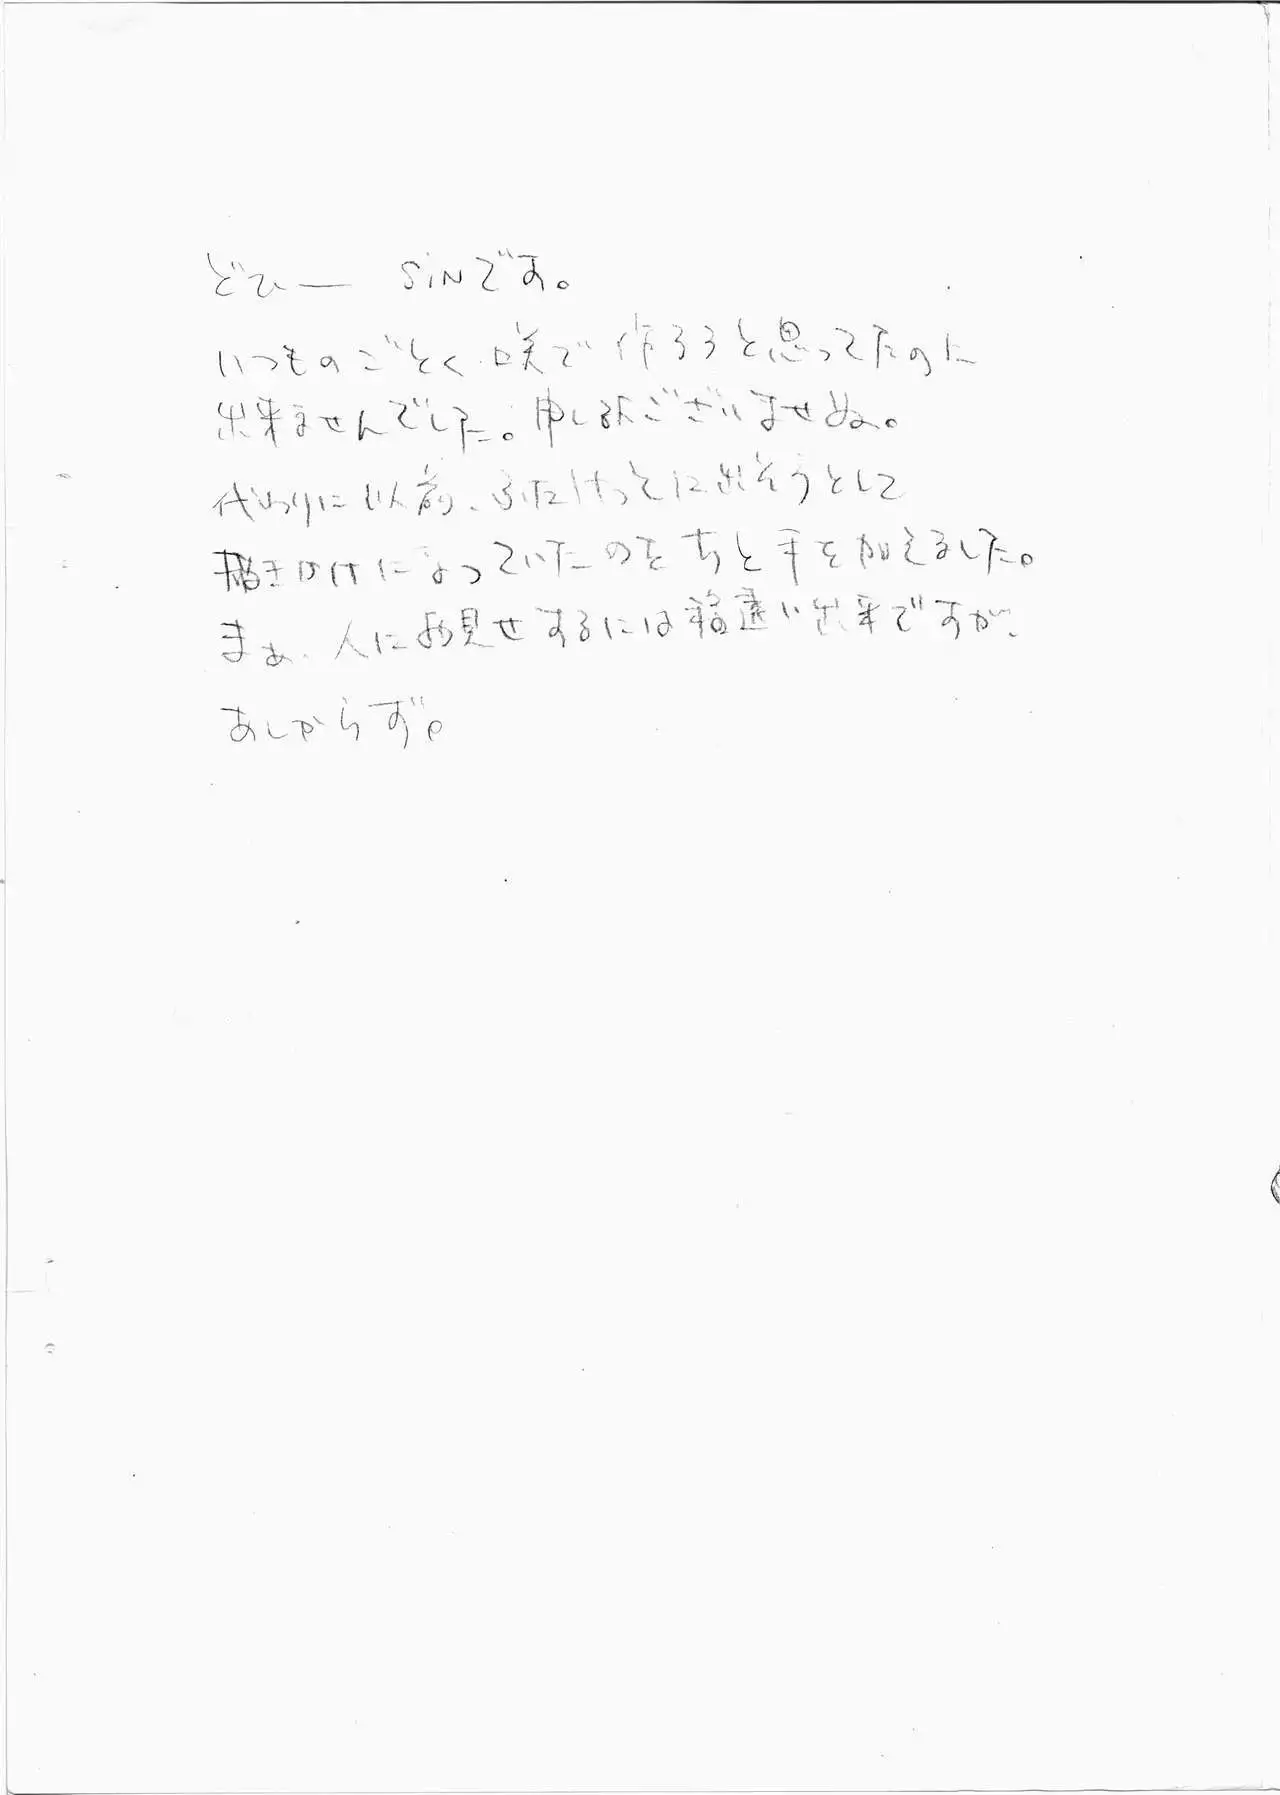 どひー SiNです。
いつものごとく咲で作ろうと思ってたのに
出来ませんでした。申し訳ございませぬ。
代わりに以前、ふたけっとに出そうとして
描きかけになっていたのをちと手を加えました。
まぁ、人にお見せするには程遠い出来ですが、
あしからず。